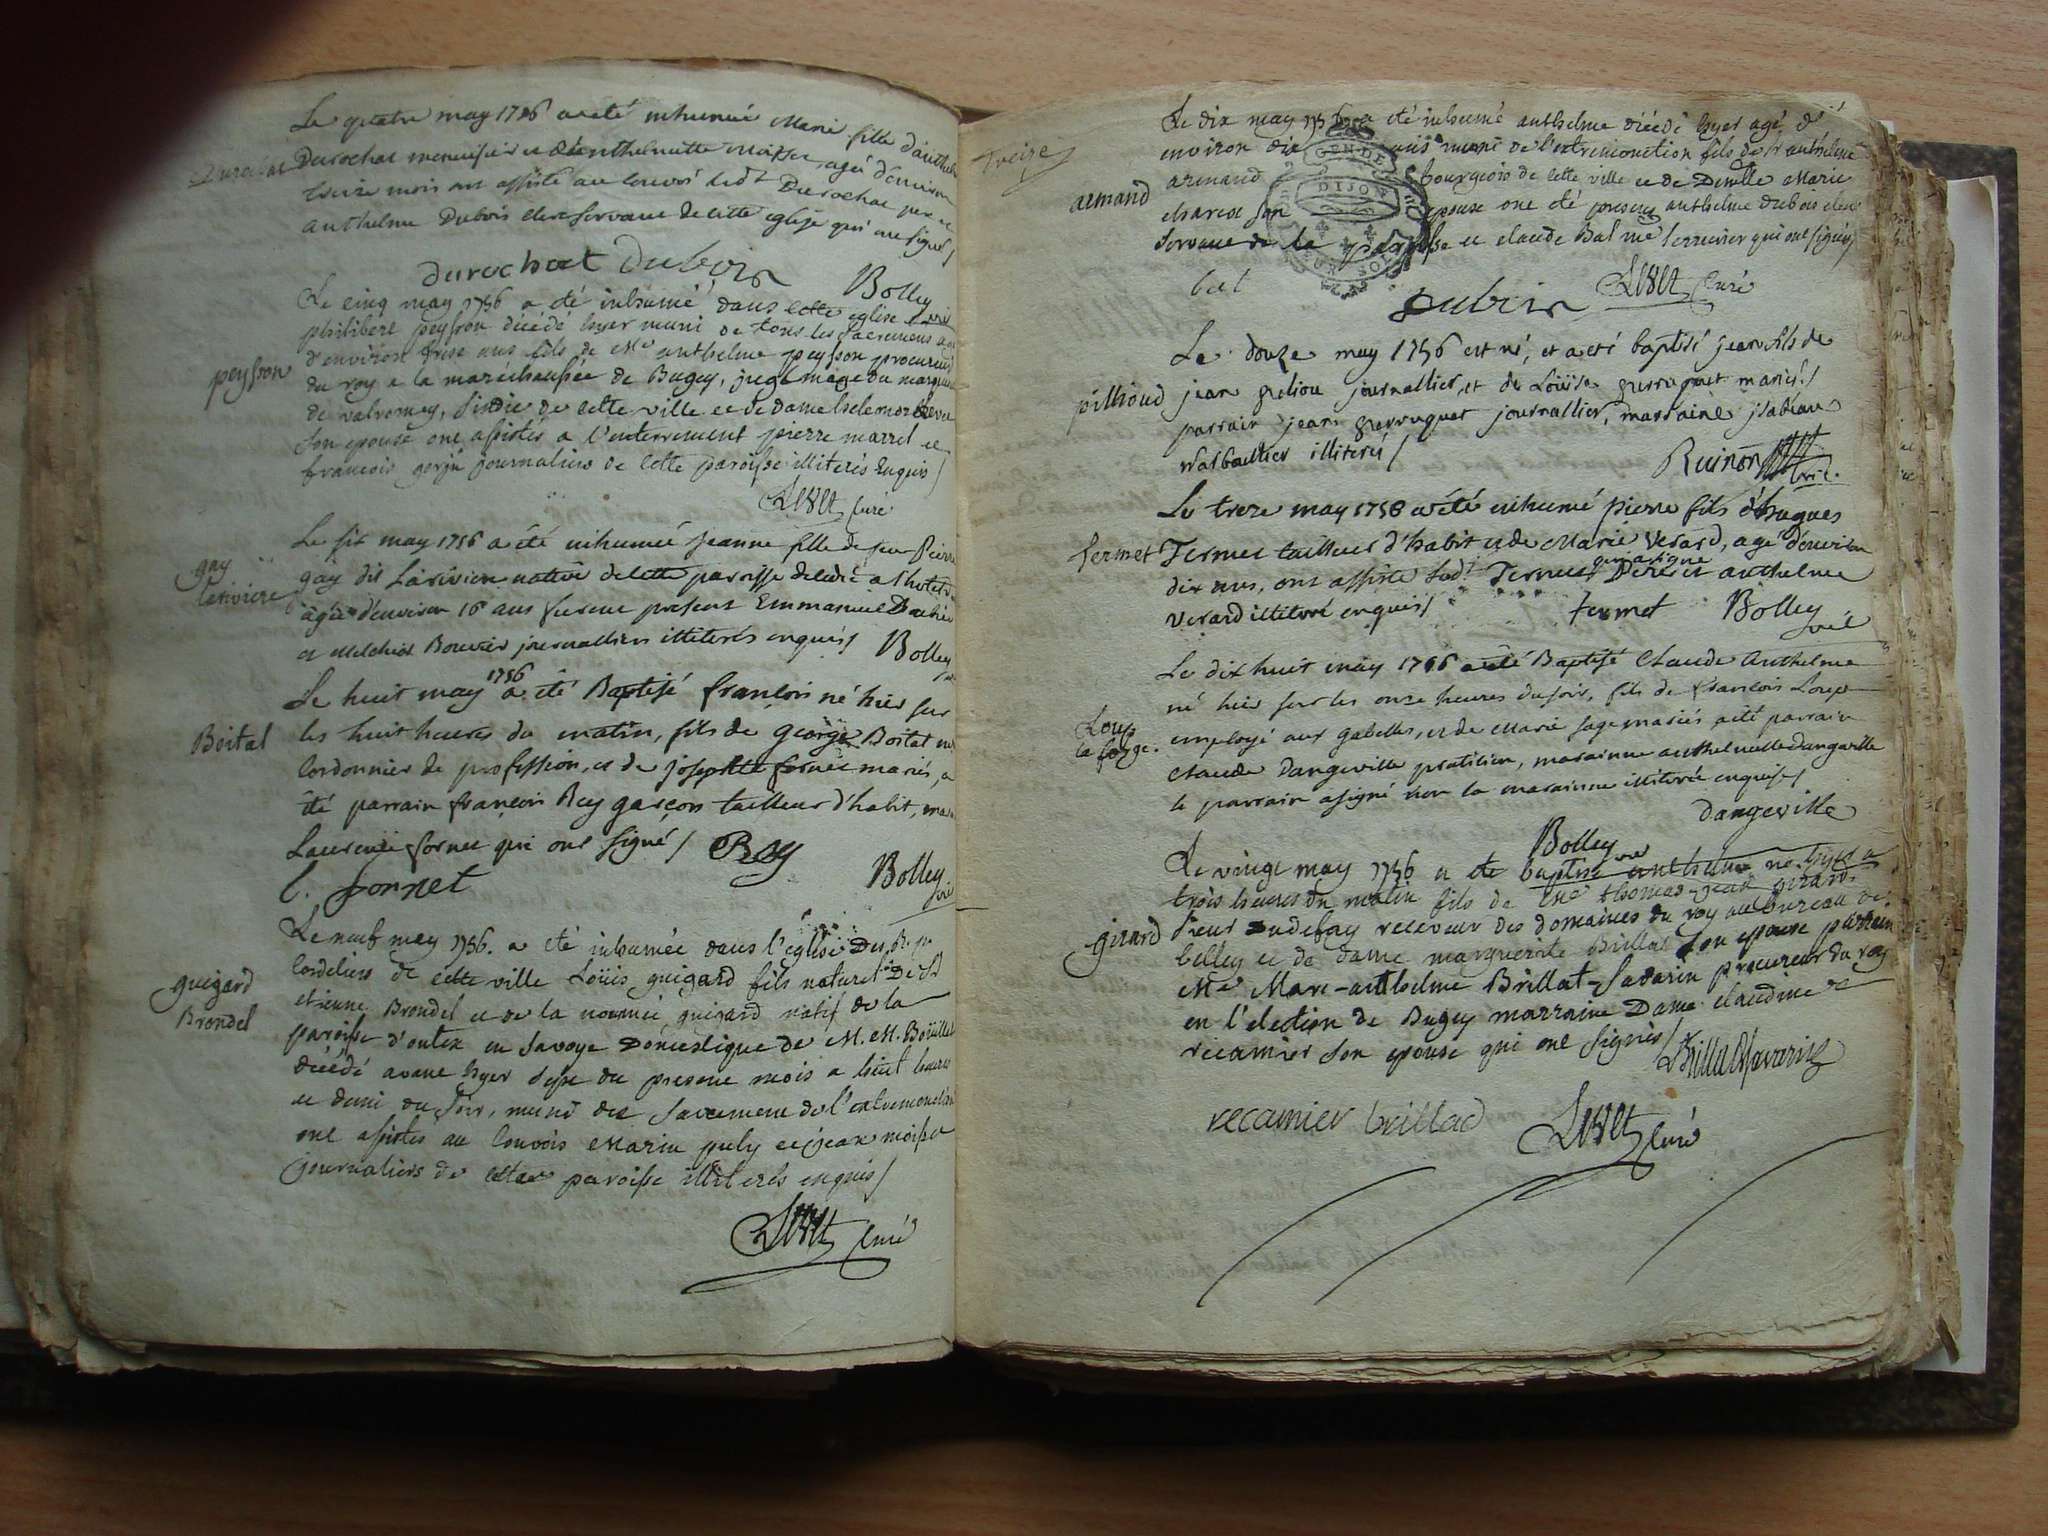 Le quatre may 1756 a été inhumée Marie fille d'anthelme
Durochat
Durochat menuisier et d'anthelmette Moisse, agée d'environ
treize mois ont assisté au convoi ledt Durochat pere et
anthelme Dubois clerc servant de cette eglise qui ont signé /
durochat Dubois
Bolley
Le cinq may 1756 a été inhumé dans cette eglise
philibert peysson décédé hyer muni de tous les sacremens agé
d'environ ans fils de Me anthelme peysson procureur
peysson
du roy a la maréchaussée de Bugey, juge mage du marquisat
de valromey, sindic de cette ville et de dame
son epouse ont assistés a l'enterrement pierre marrel et
francois journaliers de cette paroisse illiterés enquis /
curé
Le six may 1756 a été inhumée jeanne fille de feu Pierre
gay
lariviere
gay dit Lariviere native de cette paroisse decedée a l'hotel
agée d'environ 16 ans furent presens Emmanuel
et melchiot Bouvier journalliers illiterés enquis /
Bolley
Le huit may 1756 a été Baptisé françois né hier sur
Boital
les huit heures du matin, fils de george Boital
Cordonnier de profession, et de josephte fornet mariés, a
été parrain françois Rey garçon tailleur d'habit,
Laurence fornet qui ont signé / Rey
l. fornet
Bolley
vic
Le neuf may 1756. a été inhumée dans l'église Des R. p.
guigard
Brondel
Cordeliers de cette ville Loüis guigard fils naturel De Sr
etienne Brondel et de la nommée guigard natif de la
paroisse d'ontex en Savoye Domestique de M. M. Boüillet
décédé avant hyer sept du present mois a huit heures
et demi du soir, muni du sacrement de l'extremonction
ont assistés au Convois Marin puly et jean moisset
journaliers de cette paroisse illiterés enquis /
curé
Treize
Le dix may 1756 a été inhumé anthelme décédé hyer agé d'
environ dix ans muni de l'extremonction fils de Sr anthelme
armand
armand bourgeois de cette ville et de Demlle Marie
charcot son epouse ont été presens anthelme dubois clerc
servant de la paroisse et claude Bal me serrurier qui ont signés /
GEN DE
DIJON
bal
dubois
curé
Le douze may 1756 est né, et a eté baptisé jean fils de
pillioud
jean peliou journallier, et de Loüise perruquet mariés /
parrain jean perruquet journallier, marraine jsabeau
walboullier illiterés /
Ruinon
vic.
Le treze may 1756 a été inhumé pierre fils d'hugues
fermet
Termet tailleur d'habit et de Marie Verard, agé d'environ
qui a signé
dix ans, ont assisté led. Termet Pere et anthelme
Verard illiteré enquis /
termet Bolley
vic
Le dix huit may 1756 a été Baptisé Claude Anthelme
né hier sur les onze heures du soir, fils de françois Loup
Loup
la forge.
employé aux gabelles, et de Marie sage mariés a été parrain
Claude Dangeville praticien, maraine anthelmette dangeville
le parrain a signé non la maraine illiterée enquise /
dangeville
Bolley
vic
Le vingt may 1756 a eté baptisé anthelme né hyer a
trois heures du matin fils de Me thomas-jean girard
girard
sieur Dudefay receveur des domaines du roy au bureau de
belley et de dame marguerite Brillat son epouse parrain
Me Marc-anthelme Brillat-Savarin procureur du roy
en l'election de Bugey marraine Dame claudine
recamier son epouse qui ont signés /
Brillat Savarin
recamier brillad
curé